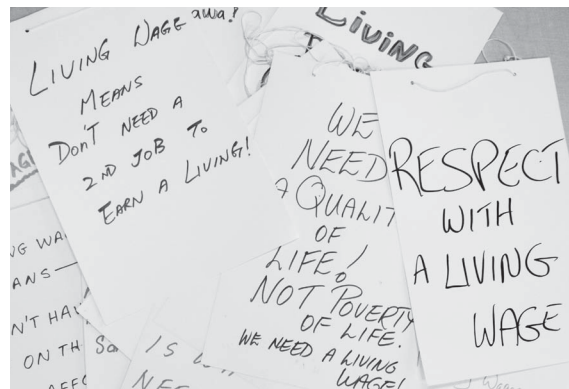 LIVING WAGE
MEANS
DON'T NEED A
2ND JOB TO
EARN A LIVING!
LIVING
WE
NEED
A QUALIT
OF
LIFE!
NOT POVERTY
OF LIFE.
WE NEED A LIVING
WAGE!
RESPECT
WITH
A LIVING
WAGE
NG WA
ANS—
N'T HAV
ON TH
IS
NEE